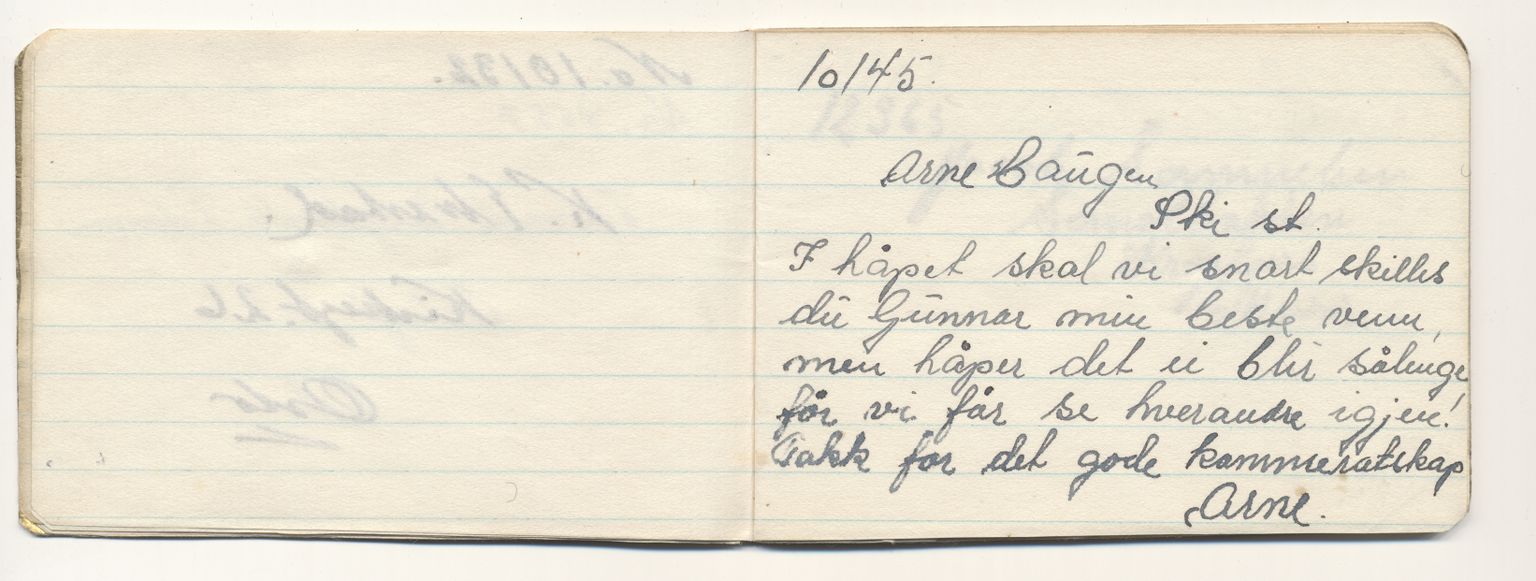 10145.
Arne Haugen
Ski st.
I håpet skal vi snart skilles
du Gunnar min beste venn,
men håper det ei blir sålenge
før vi får se hverandre igjen!
Takk for det gode kammeratskap
Arne.
No. 10132.
Oslo